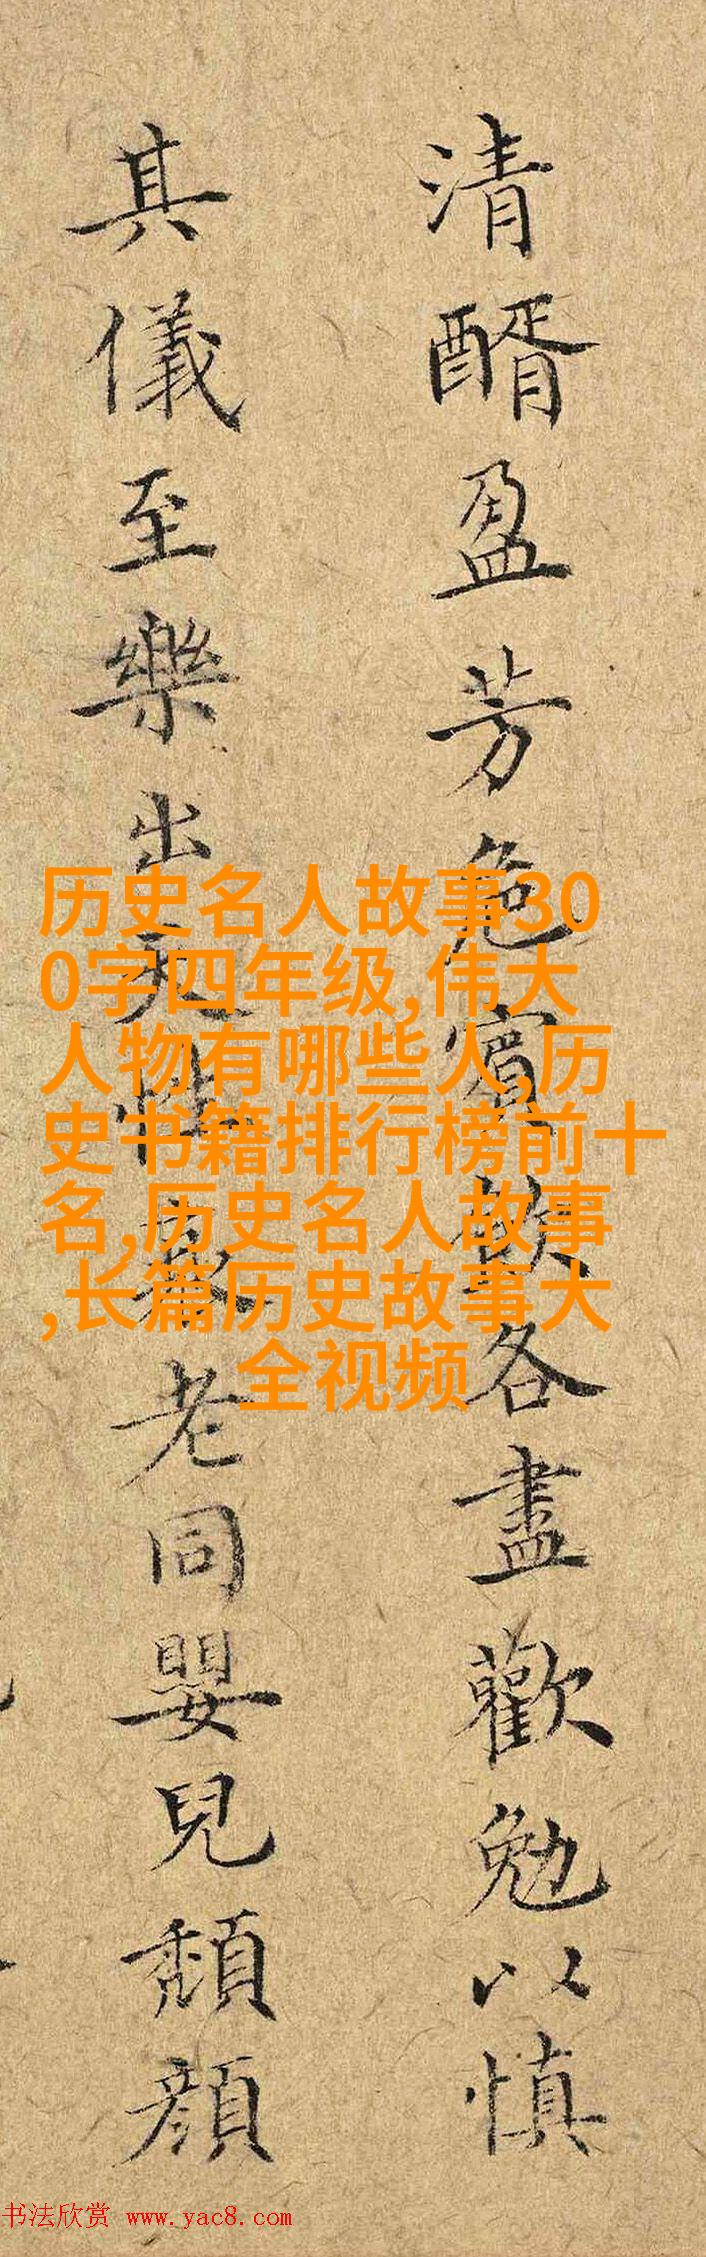 清醑盈芳賓各盡歡勉以慎
其儀至樂出天性老同嬰兒頹顏
历史名人故事30
0字四年级,伟大
人物有哪些人,历
史书籍排行榜前十
名,历史名人故事
,长篇历史故事大
全视频
书法欣赏 www.yac8.com